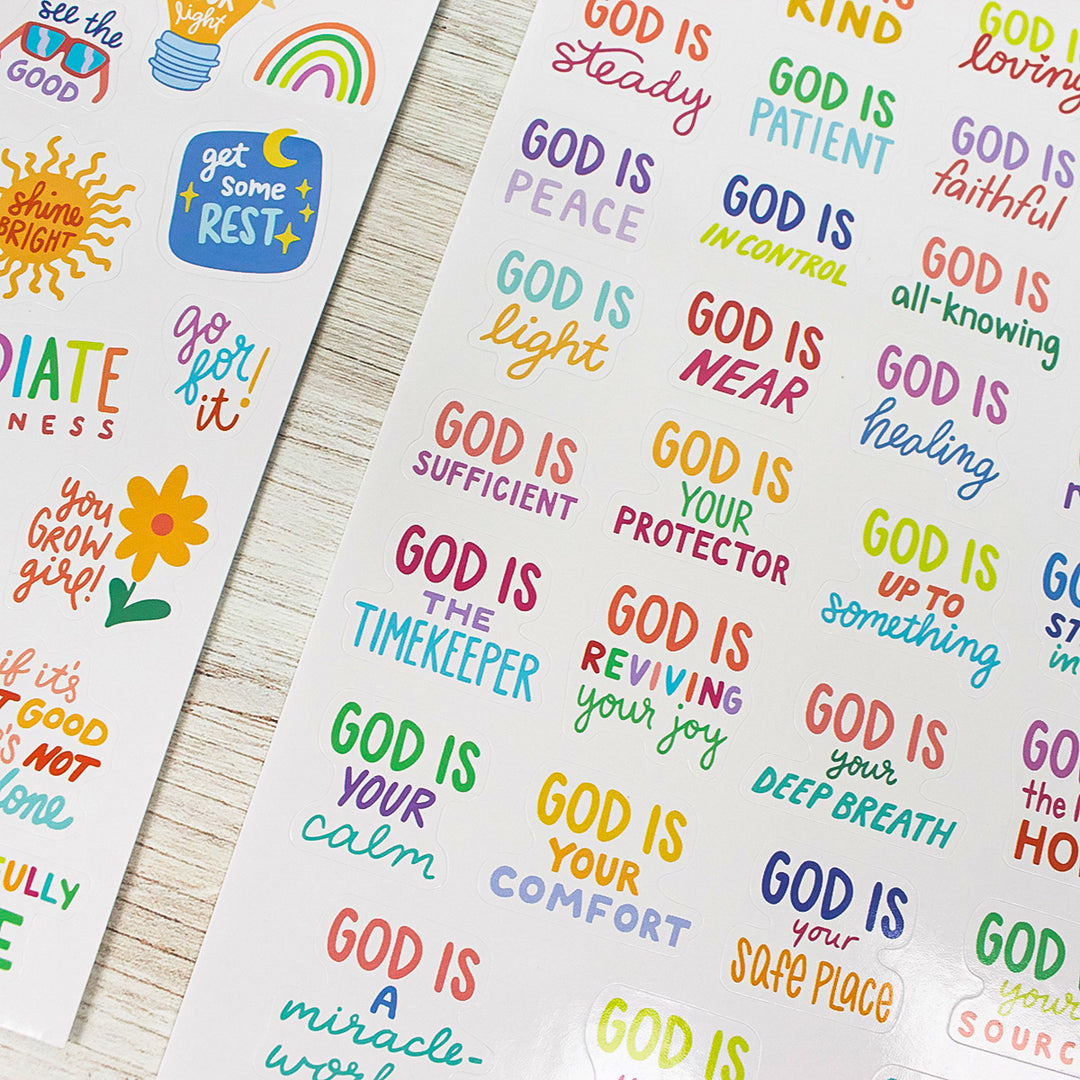 see the
GOOD
light
shine
BRIGHT
get
some
REST
go
for!
it!
DIATE
NESS
you
GROW
girl!
if it's
GOOD
NOT
GOD IS
steady
KIND
GOD IS
loving
GOD IS
PATIENT
GOD IS
PEACE
GOD IS
faithful
GOD IS
IN CONTROL
GOD IS
light
GOD IS
all-knowing
GOD IS
NEAR
GOD IS
healing
GOD IS
SUFFICIENT
GOD IS
YOUR
PROTECTOR
GOD IS
UP TO
something
GOD IS
THE
TIMEKEEPER
GOD IS
REVIVING
your joy
GOD IS
your
DEEP BREATH
the
GOD IS
YOUR
calm
GOD IS
YOUR
COMFORT
GOD IS
your
SAFE PLACE
GOD
your
SOURC
GOD IS
A
miracle-
GOD IS